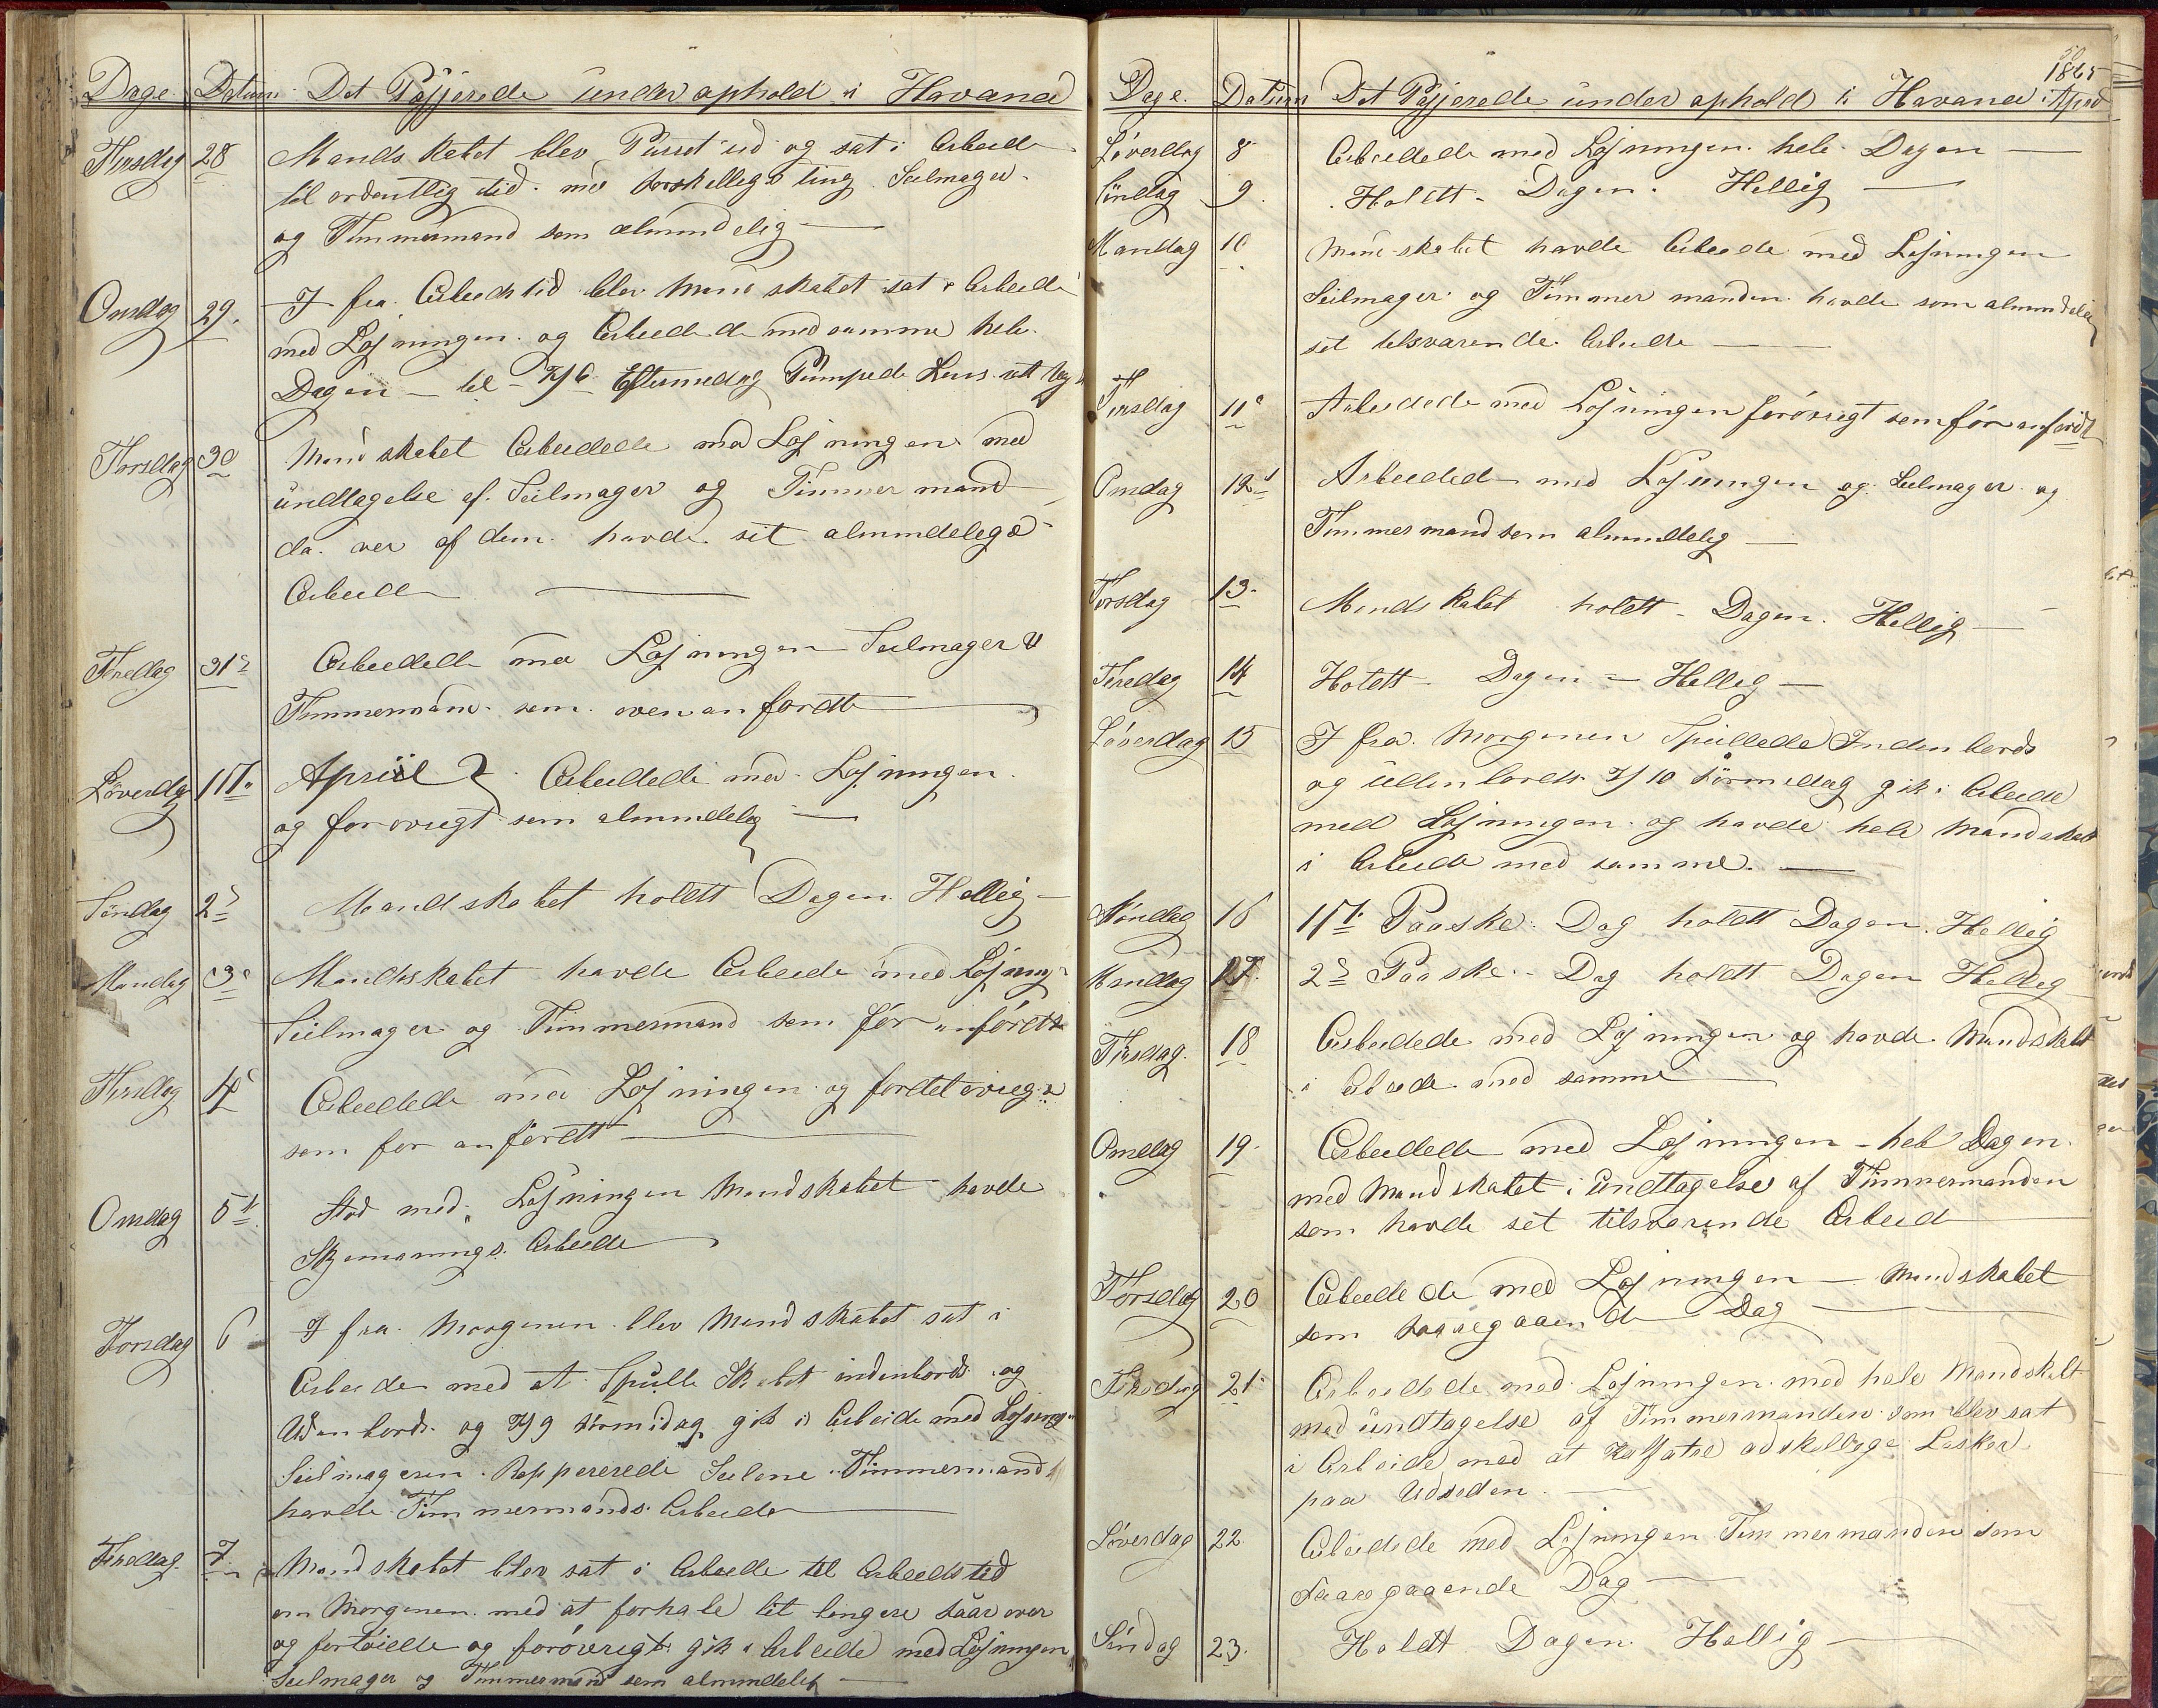 Dage Datum Det Pasjerede under ophold i Havana
Tirsdag 28 Mandskabet blev Purret ud og sat i Arbeide
til ordentlig tid. med forskellige ting Seilmager
og Timmermand som almindelig
Onsdag 29. I fra Arbeidstid blev Mandskabet sat i Arbeide
med Losningen. og Arbeidede med samme hele
Dagen – til Kl 6 Eftermedag Pumpede Lens
Torsdag 30 Mandskabet Arbeidede med Losningen med
undtagelse af. Seilmager og Timmermand
da. ver af dem. havde sit almindelige
Arbeide
Fredag 31te Arbeidede med Losningen Seilmager &
Timmermand. som oven anfördt
Löverdag 1ste April Arbeidede med Losningen
og forövrigt som almindelig
Söndag 2d Mandskabet holdt Dagen Hellig
Mandag 3e Mandskabet havde Arbeide med Losning
Seilmager og Timmermand som för anfördt
Tirsdag 4e Arbeidede med Losningen og fordetövrigt
som för anfördt
Onsdag 5te Stod med Losningen Mandskabet havde
Arbeide
Torsdag 6 I fra Morgenen blev Mandskabet sat i
Arbeide med at Spulle Skibet indenbords og
Udenbords og Kl 9 Formidag gik i Arbeide med Losning
Seilmageren Reppererede Seilene Timmermand
havde Timmermands Arbeide
Fredag 7. Mandskabet blev sat i Arbeide til Arbeidstid
om Morgenen med at forhale lit lengere over
og fortöiede og forövrigt gik i Arbeide med Losningen
Seilmager og Timmermand som almindelig
1865
Dage. Datum Det Pasjerede under ophold i Havana April
Löverdag 8 Arbeidede med Losningen hele Dagen
Söndag 9. Holdt Dagen Hellig
Mandag 10 Mandskabet havde Arbeide med Losningen
Seilmager og Timmermanden havde som almindelig
sit tilsvarende Arbeide
Tirsdag 11e Arbeidede med Losningen forövrigt som för anfördt
Onsdag 12te Arbeidede med Losningen og Seilmager og
Timmermand som almindelig
Torsdag 13 Mandskabet holdt Dagen Hellig
Fredag 14 Holdt Dagen Hellig
Löverdag 15 I fra Morgenen Spullede Indenbords
og Udenbords Kl 10 Formidag gik i Arbeide
med Losningen og havde hele Mandskabet
i Arbeide med samme.
Söndag 16 1ste Paaske Dag holdt Dagen Hellig
Mandag 17. 2d Paaske Dag holdt Dagen Hellig
Tirsdag 18 Arbeidede med Losningen og havde Mandskabet
i Arbeide med samme
Onsdag 19. Arbeidede med Losningen hele Dagen
med Mandskabet i undtagelse af Timmermanden
som havde sit tilsvarende Arbeid
Torsdag 20 Arbeidede med Losningen – Mandskabet
som foregaaende Dag
Fredag 21. Arbeidede med Losningen med hele Mandskabet
med undtagelse af Timmermanden som blev sat
i Arbeide med at Kalfatre adskellige Lasker
paa Udseden.
Löverdag 22. Arbeidede med Losningen Timmermanden som
foregaaende Dag
Söndag 23. Holdt Dagen Hellig